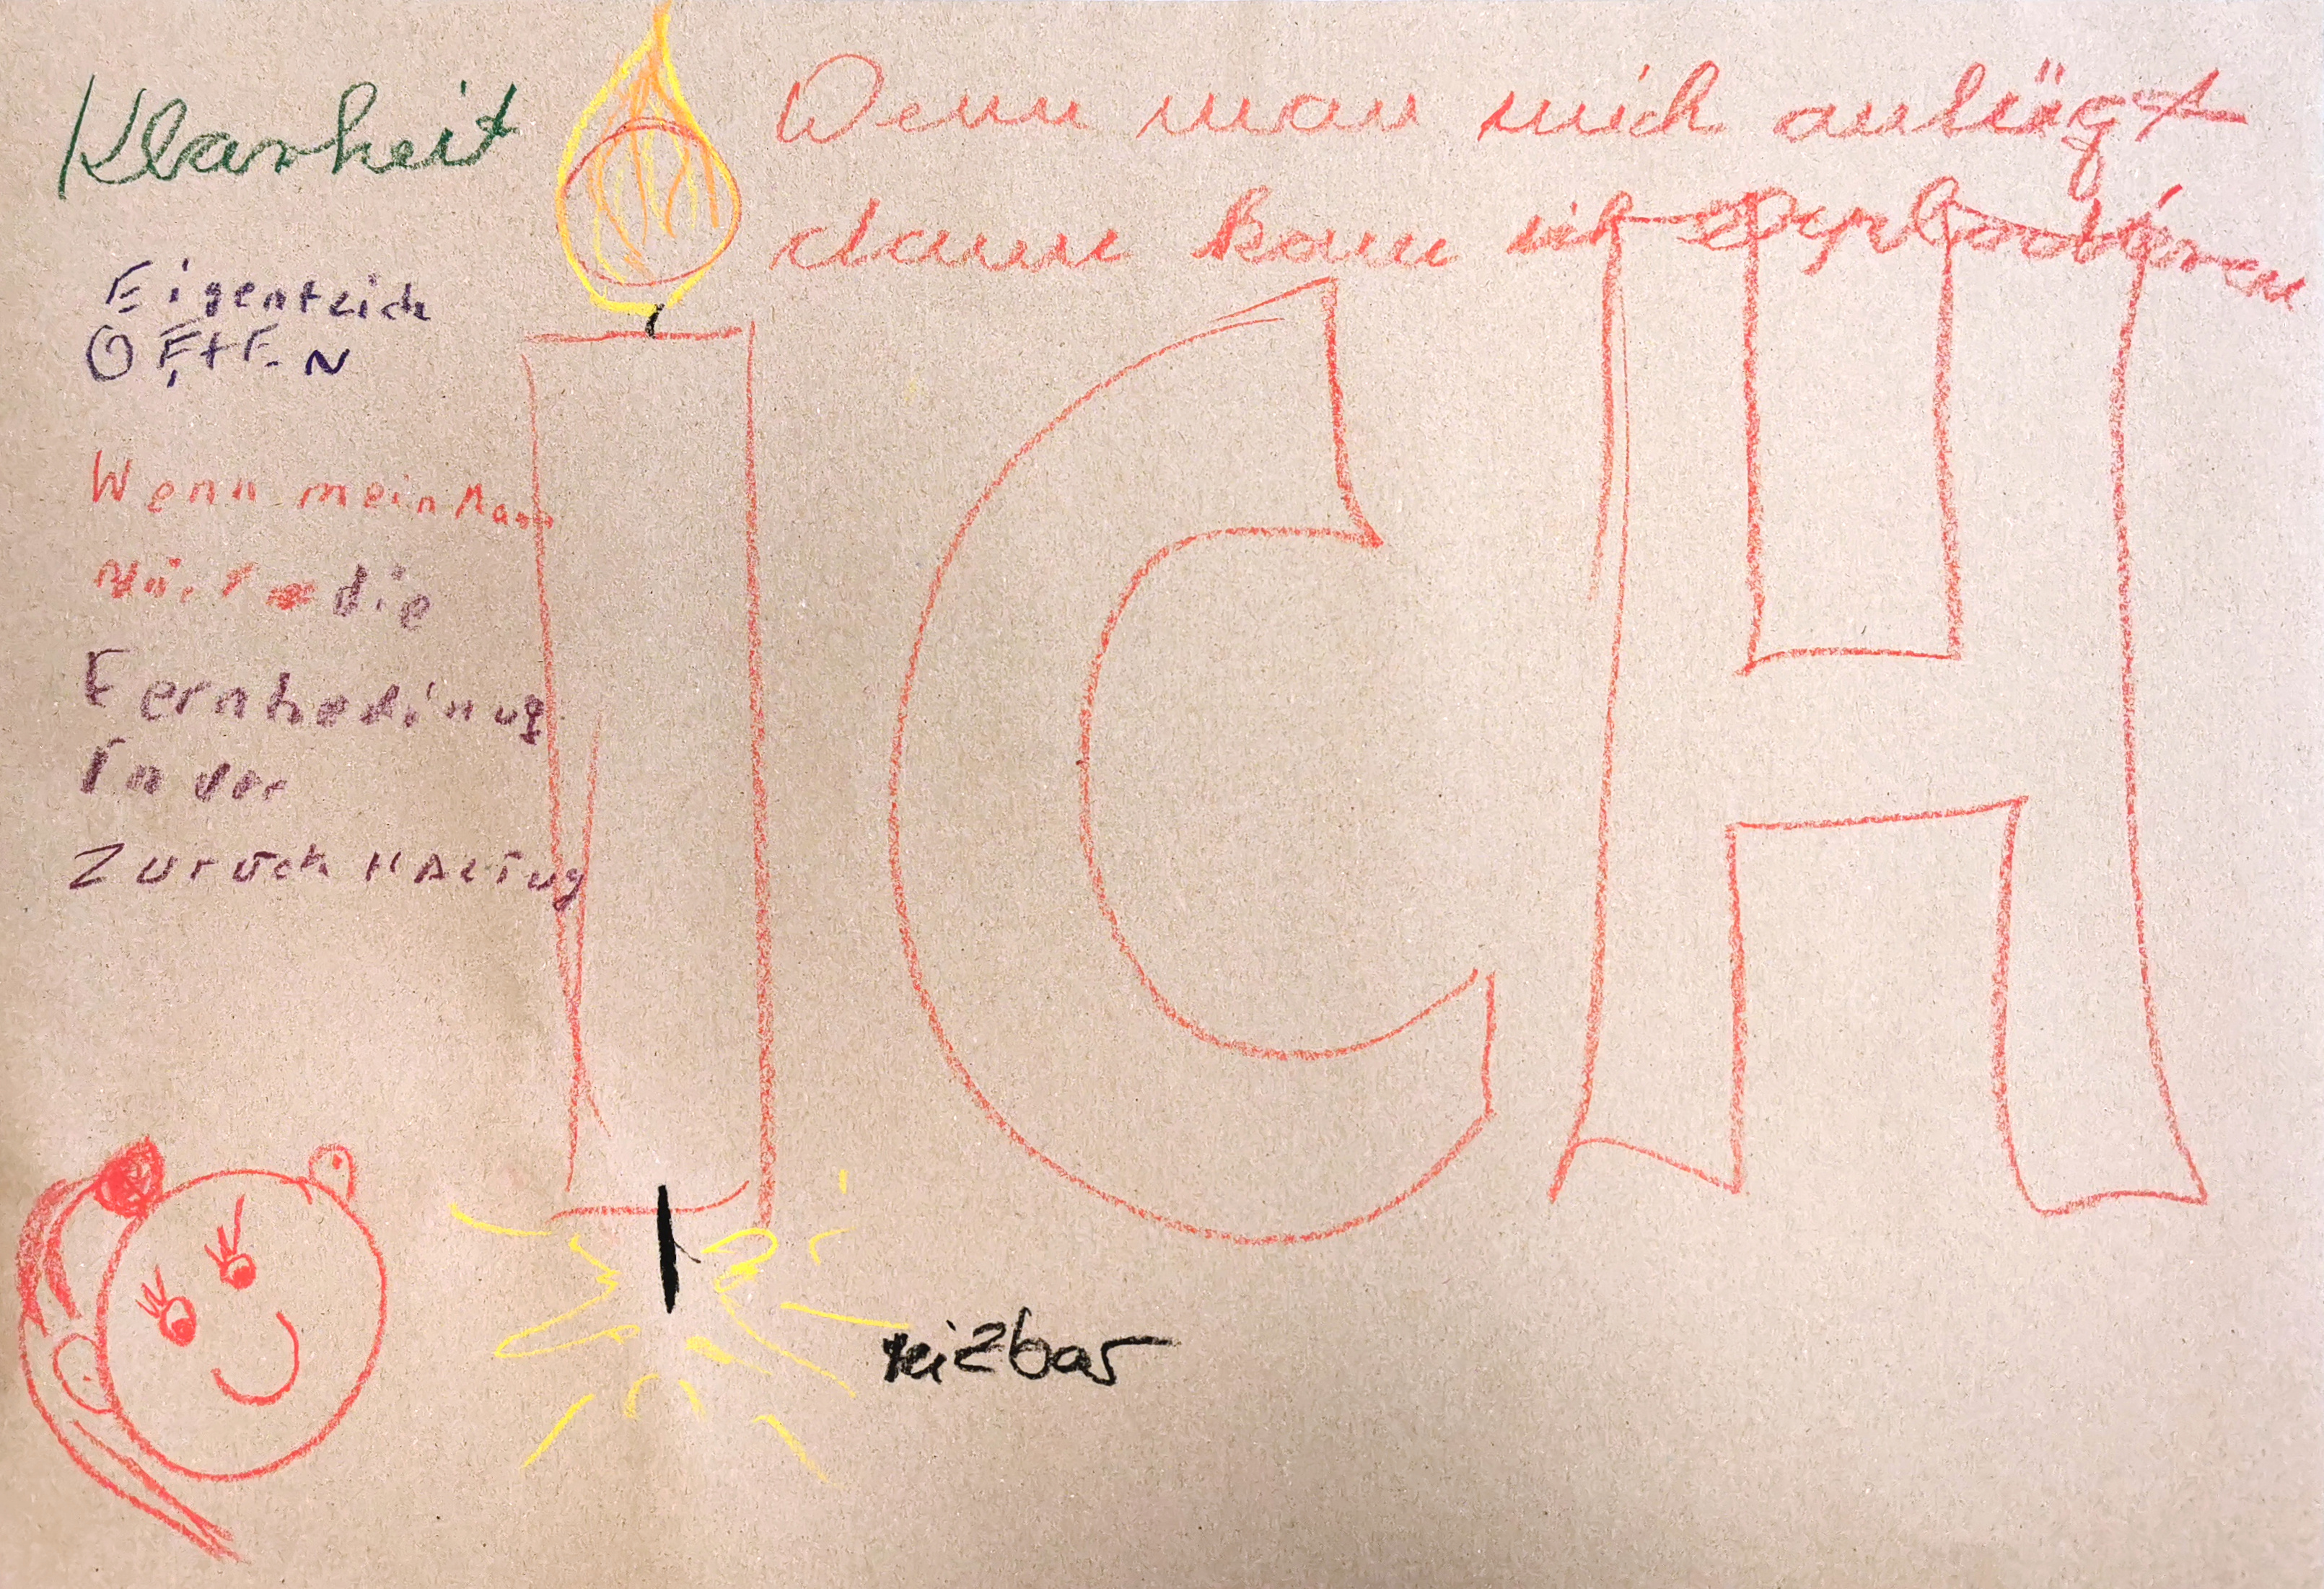 Klarheit
Wenn man mich anlügt
dann kann ich explodieren
Eigentlich
OFFEN
Wenn mein Mann
die
Fernbedinug
In der
ZurückHALTug
ICH
reizbar